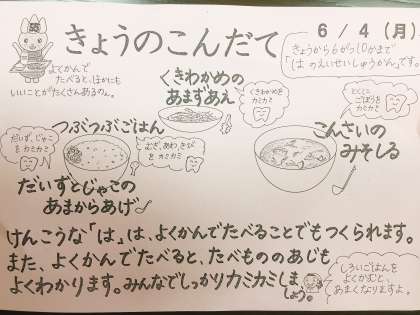 きょうのこんだて
6/4(月)
よくかんで
たべると、ほかにも
いいことがたくさんあるのん。
きょうから6がつ10かまで
「は のえいせいしゅうかん」です。
くきわかめの
あまずあえ
くきわかめを
カミカミ
とくに
ごぼうを
カミカミ
つぶつぶごはん
だいず、じゃこ
をカミカミ
むぎ、あわ、きび
をカミカミ
こんさいの
みそしる
だいずとじゃこの
あまからあげ
けんこうな「は」は、よくかんでたべることでもつくられます。
また、よくかんでたべると、たべもののあじも
よくわかります。みんなでしっかりカミカミしま
しょう。
しろいごはんを
よくかむと、
あまくなりますよ。